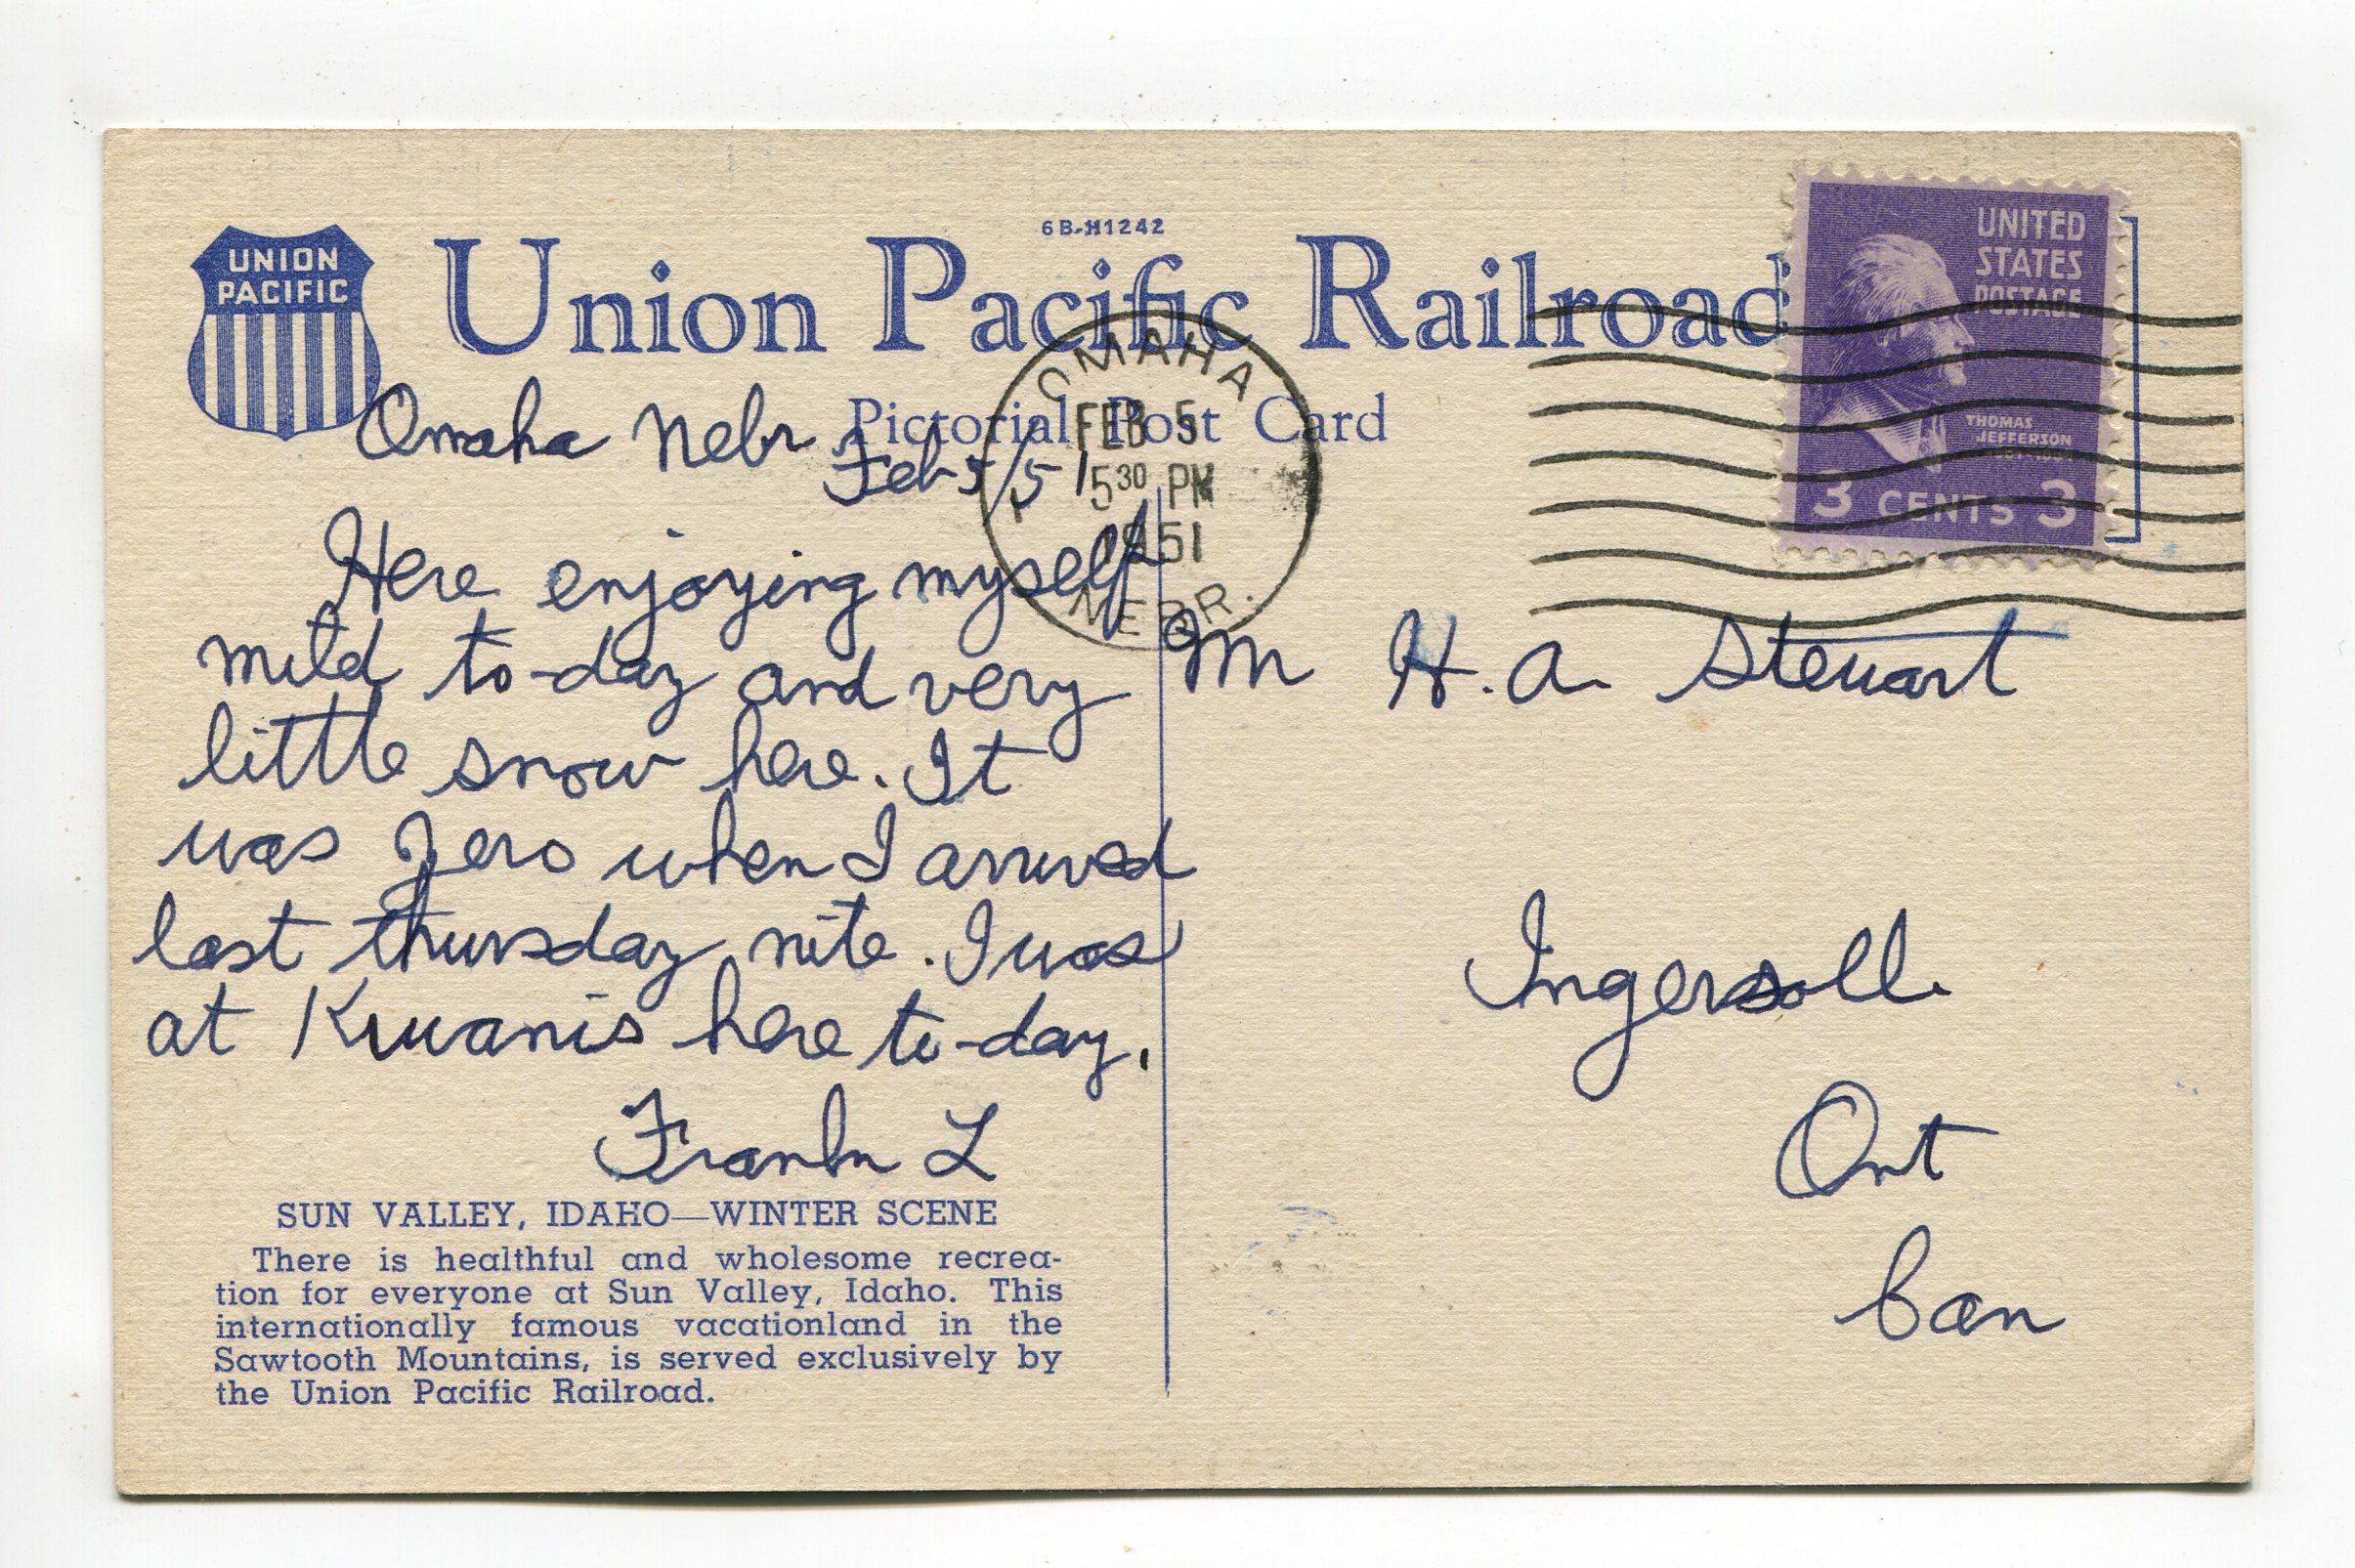 6B-H1242
UNION
PACIFIC
Union Pacific Railroad
Pictorial Post Card
UNITED
STATES
POSTAGE
THOMAS
JEFFERSON
3 CENTS 3
OMAHA
FEB 5
5 30 PM
1951
NEBR.
Omaha Nebr
Feb 5/51
Here enjoying myself
mild to-day and very
little snow here. It
was Zero when I arrived
last thursday nite. I was
at Kiwanis here to-day.
L
Mr H. A. Stewart
Ingersoll
Ont
Can
SUN VALLEY, IDAHO—WINTER SCENE
There is healthful and wholesome recrea-
tion for everyone at Sun Valley, Idaho. This
internationally famous vacationland in the
Sawtooth Mountains, is served exclusively by
the Union Pacific Railroad.